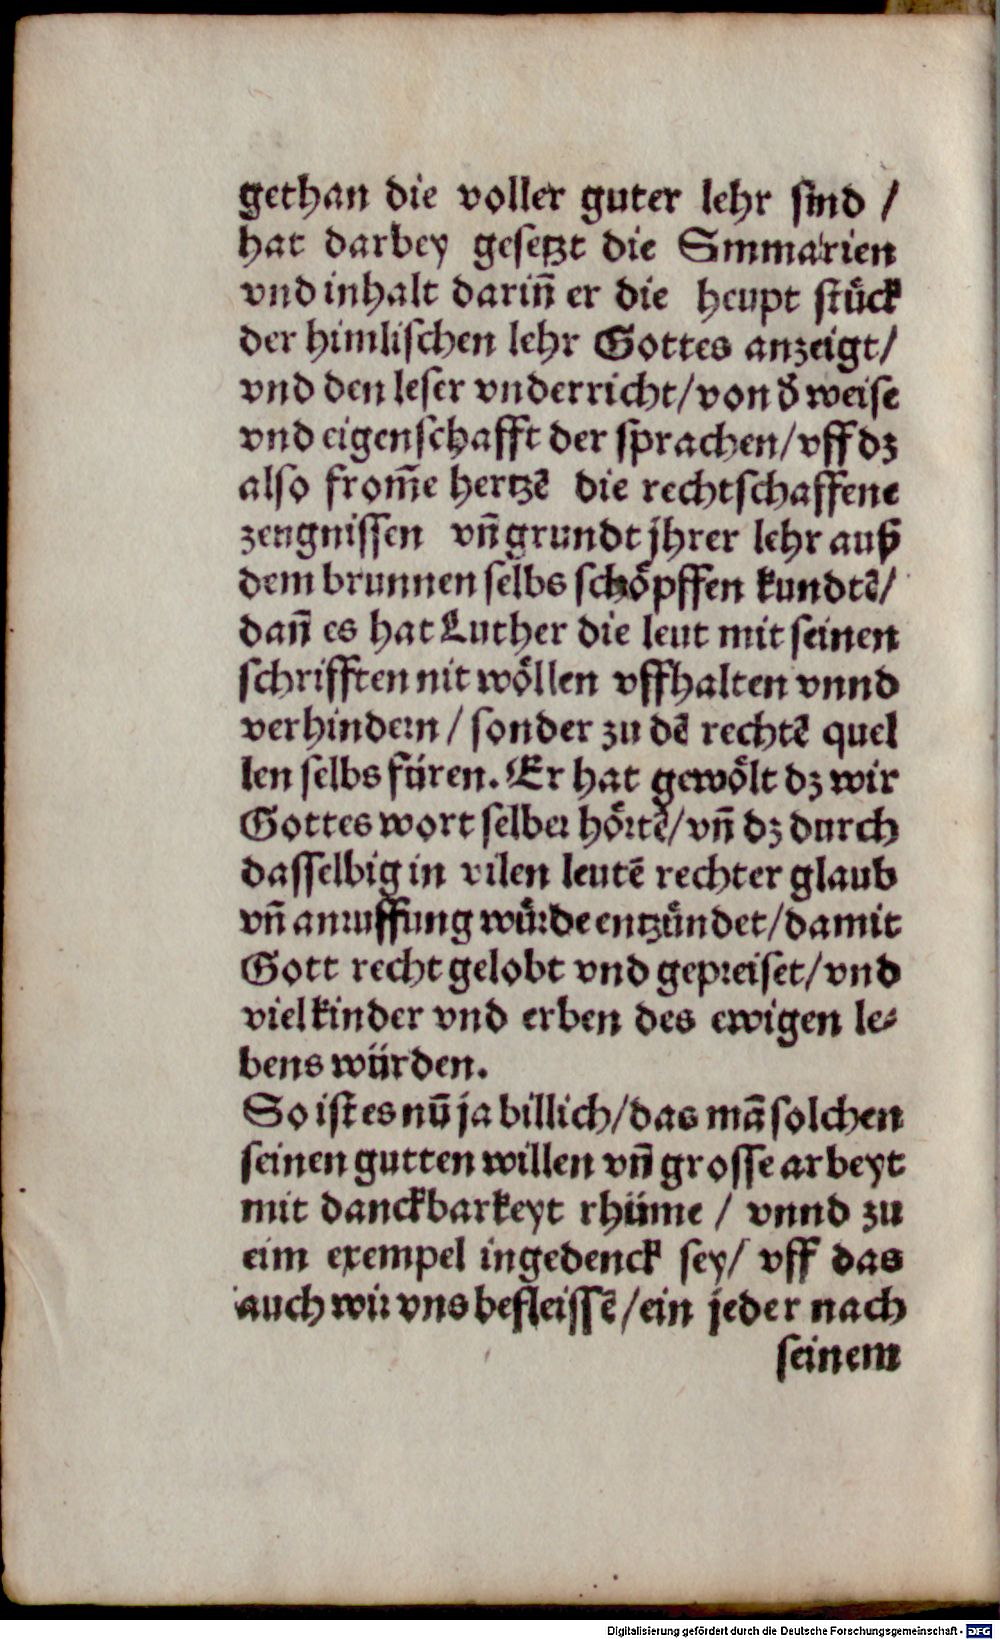 gethan die voller guter lehr sind /
hat darbey gesetzt die Smmarien
vnd inhalt dariñ er die heupt stuͤck
der himlischen lehr Gottes anzeigt/
vnd den leser vnderricht/von d̄ weise
vnd eigenschafft der sprachen/vff dz
also from̃e hertzẽ die rechtschaffene
zeugnissen vñ grundt jhrer lehr auß
dem brunnen selbs schoͤpffen kundtẽ/
dañ es hat Luther die leut mit seinen
schrifften nit woͤllen vffhalten vnnd
verhindern / sonder zu dẽ rechtẽ quel
len selbs füren. Er hat gewoͤlt dz wir
Gottes wort selber hoͤrtẽ/vñ dz durch
dasselbig in vilen leutẽ rechter glaub
vñ anruffung wuͤrde entzuͤndet/damit
Gott recht gelobt vnd gepreiset/vnd
viel kinder vnd erben des ewigen le-
bens würden.
So ist es nũ ja billich/das mã solchen
seinen gutten willen vñ grosse arbeyt
mit danckbarkeyt rhüme / vnnd zu
eim exempel ingedenck sey/ vff das
auch wir vns befleissẽ/ein jeder nach
seinem
Digitalisierung gefördert durch die Deutsche Forschungsgemeinschaft - DFG